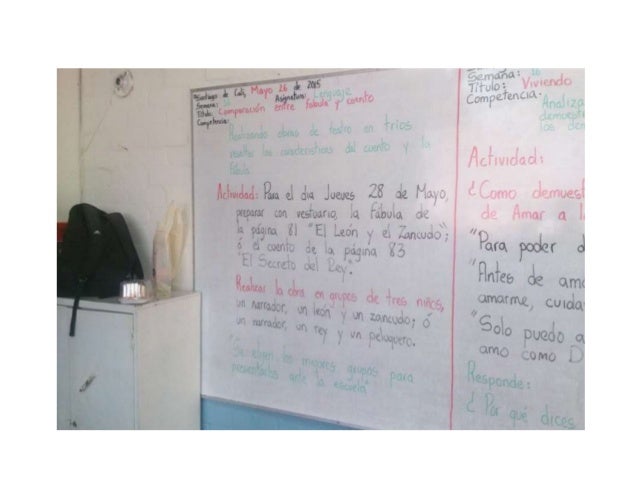 Santiago de Cali, Mayo 26 de 2015
Semana: 16 Asignatura: Lenguaje
Título: Comparación entre fábula y cuento
Competencia:
Realizando obras de teatro en tríos
resaltar las características del cuento y la
fábula
Actividad: Para el dia Jueves 28 de Mayo,
preparar con vestuario, la Fábula de
la página 81 "El León y el Zancudo";
ó el cuento de la página 83
"El Secreto del Rey".
Realizar la obra en grupos de tres niños,
un narrador, un león y un zancudo; ó
un narrador, un rey y un peluquero.
"Se eligen los mejores grupos para
presentarlos ante la escuela"
Semana: 16
Título: Viviendo
Competencia:
Analiza
demuest
los den
Actividad:
¿Como demuest
de Amar a l
"Para poder d
"Antes de ama
amarme, cuida
"Solo puedo a
amo como D
Responde:
¿Por qué dices